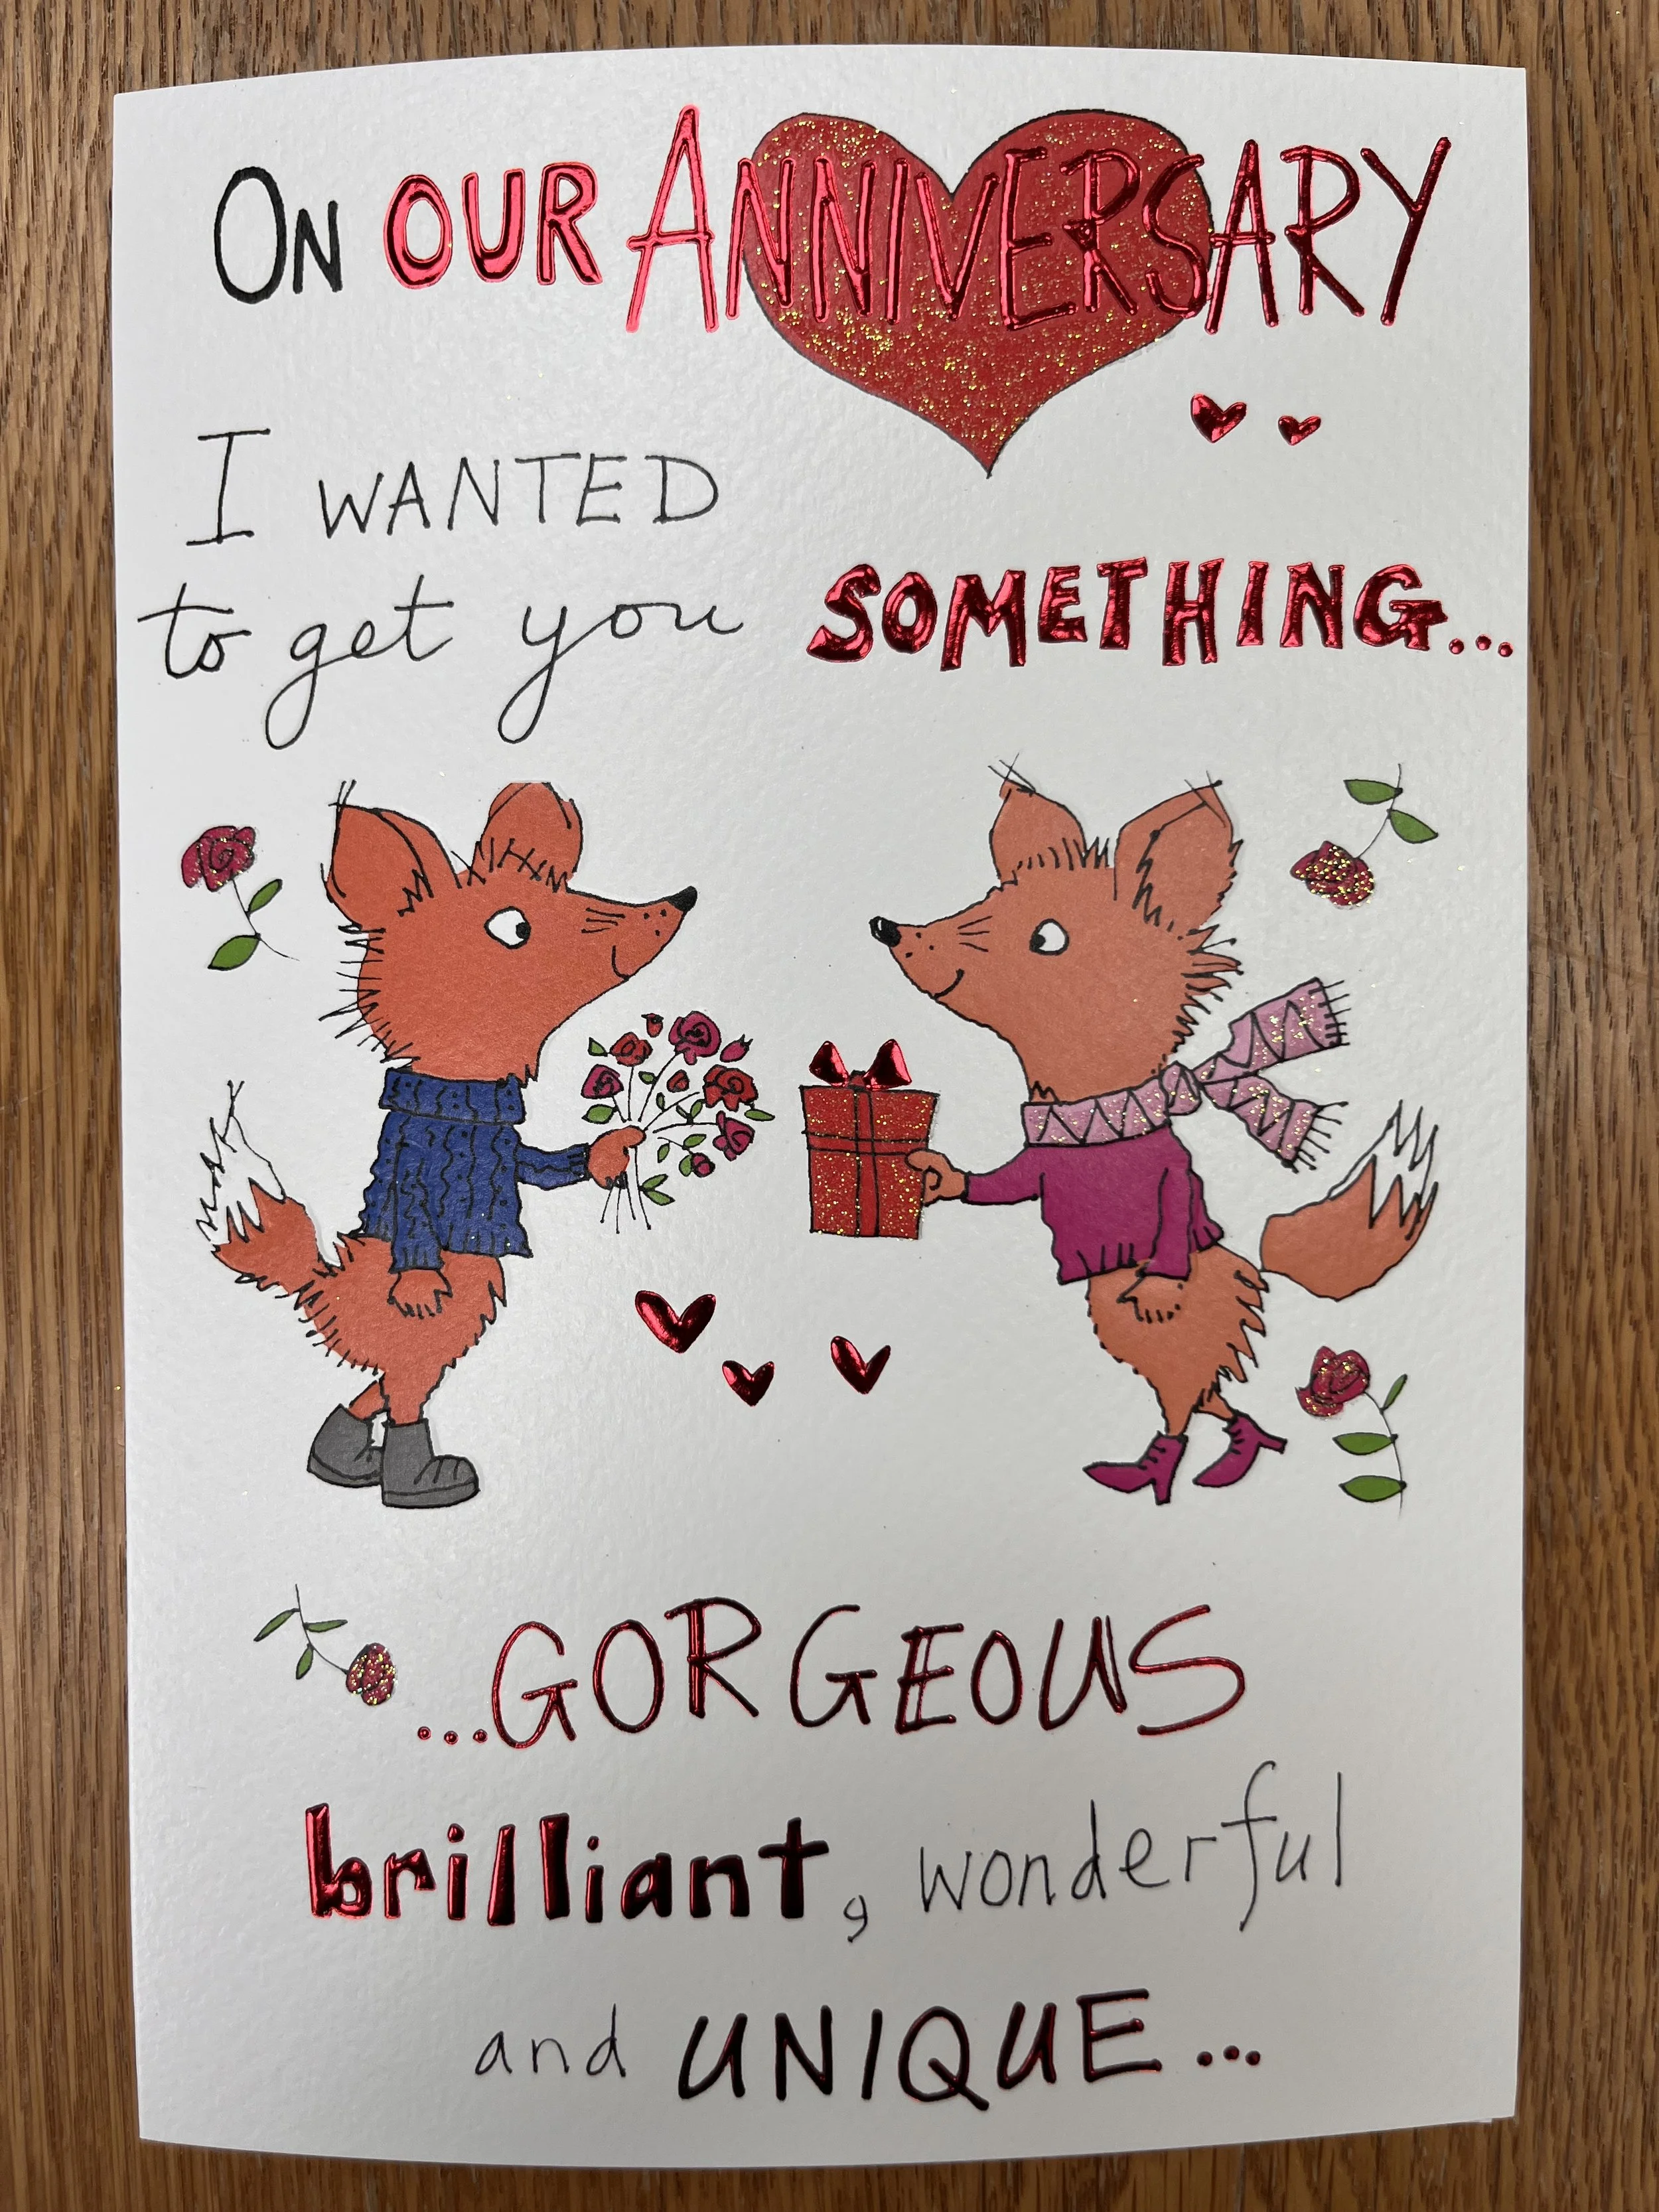 On OUR ANNIVERSARY
I WANTED
to get you SOMETHING...
...GORGEOUS
brilliant, wonderful
and UNIQUE...